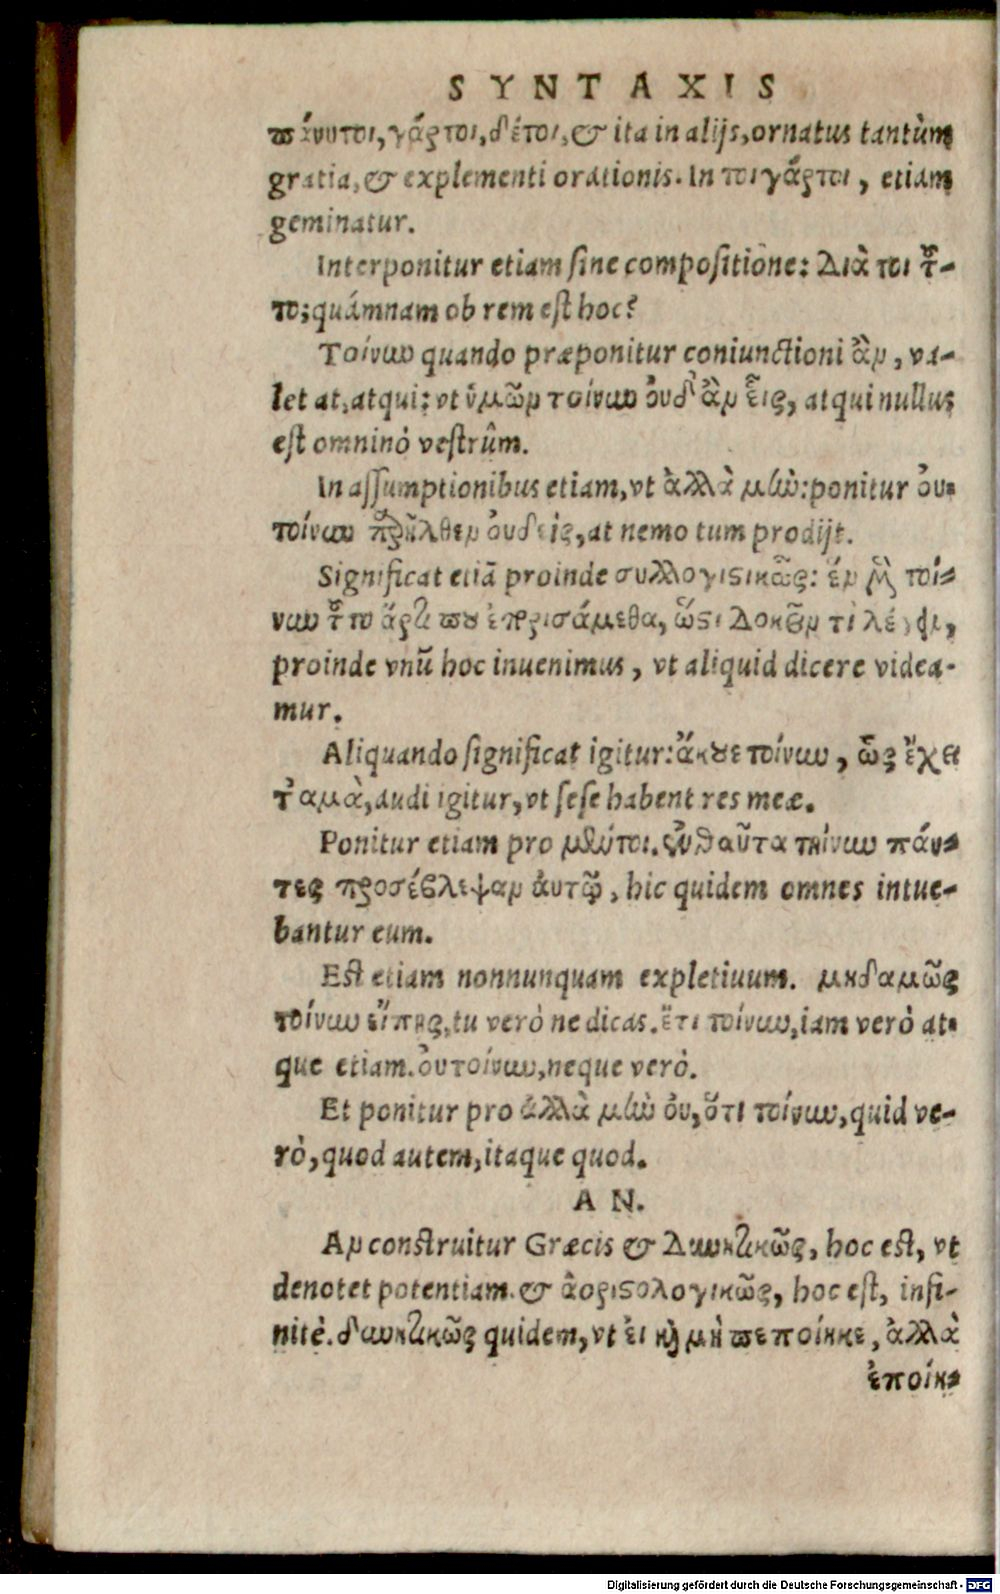 SYNTAXIS
πάνυτοι, γάρτοι, δέτοι, & ita in alijs, ornatus tantùm
gratia, & explementi orationis. In τοιγάρτοι, etiam
geminatur.
Interponitur etiam sine compositione: Διὰ τοι τȣ͂-
το; quámnam ob rem est hoc?
Τοίνυν quando præponitur coniunctioni ἂν, va-
let at, atqui: vt ὑμῶν τοίνυν ὀυδ' ἂν εἷς, atqui nullus
est omninò vestrûm.
In assumptionibus etiam, vt ἀλλὰ μὴν: ponitur ὀυ-
τοίνυν προῆλθεν ὀυδεὶς, at nemo tum prodijt.
Significat etiā proinde συλλογιϛικῶς: ἓν μὲν τοί-
νυν τȣ͂το ἄρτι πȣ ἑπρισάμεθα, ὥϛι Δοκεῖν τὶ λέγειν,
proinde vnū hoc inuenimus, vt aliquid dicere videa-
mur.
Aliquando significat igitur: ἄκȣε τοίνυν, ὧς ἔχει
τ' αμὰ, audi igitur, vt sese habent res meæ.
Ponitur etiam pro μέντοι. ἐνθαῦτα τοίνυν πάν-
τες προσέβλεψαν ἀυτῷ, hic quidem omnes intue-
bantur eum.
Est etiam nonnunquam expletiuum. μηδαμῶς
τοίνυν εἴπῃς, tu verò ne dicas. ἔτι τοίνυν, iam verò at-
que etiam. ὀυτοίνυν, neque verò.
Et ponitur pro ἀλλὰ μὴν ὀυ, ὅτι τοίνυν, quid ve-
rò, quod autem, itaque quod.
AN.
Αν construitur Græcis & Δυνητικῶς, hoc est, vt
denotet potentiam. & ἀοριϛολογικῶς, hoc est, infi-
nitè. δυνητικῶς quidem, vt ἐι καὶ μὴ πεποίηκε, ἀλλὰ
ἐποίη-
Digitalisierung gefördert durch die Deutsche Forschungsgemeinschaft - DFG